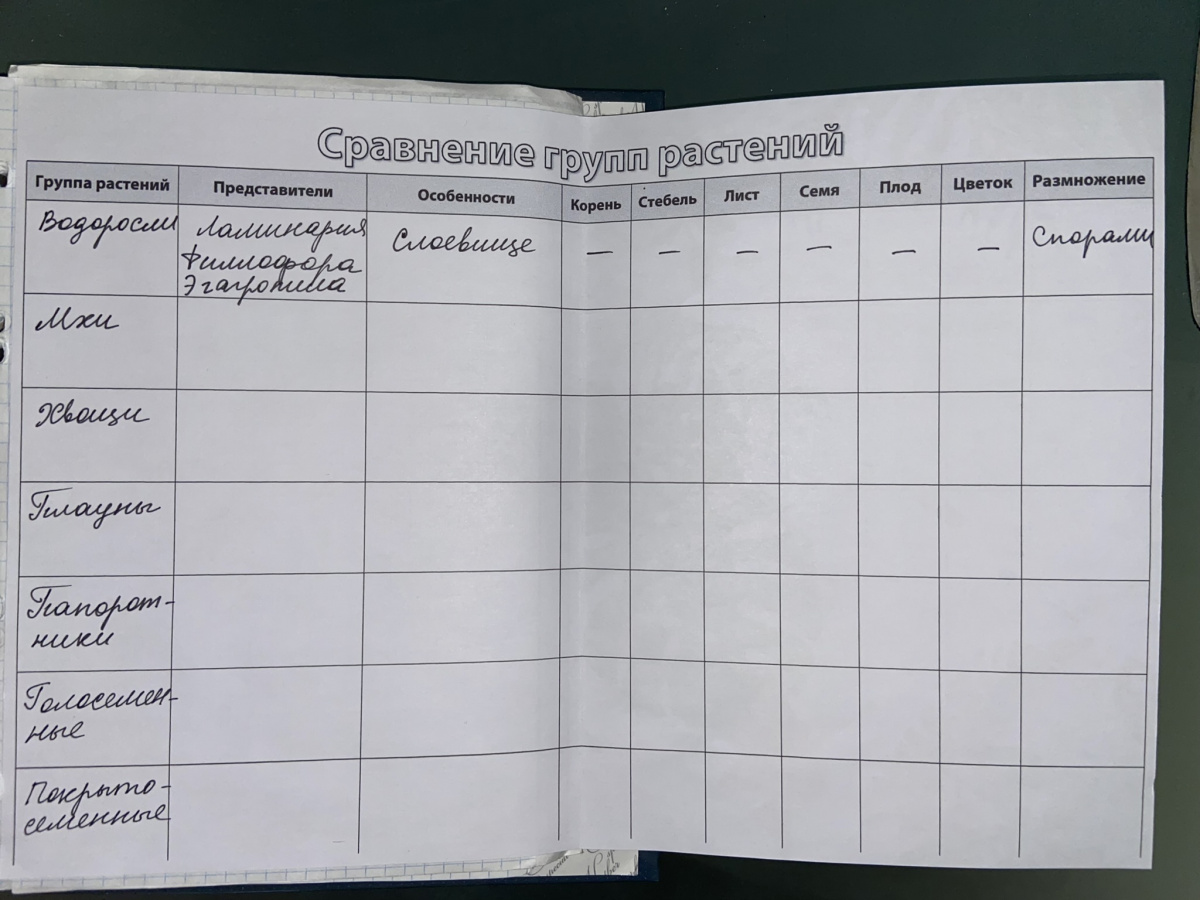 Сравнение групп растений
Группа растений Представители Особенности Корень Стебель Лист Семя Плод Цветок Размножение
Водоросли Ламинария Слоевище — — — — — — Спорами
Филлофора
Эгагропила
Мхи
Хвощи
Плауны
Папорот-
ники
Голосемен-
ные
Покрыто-
семенные